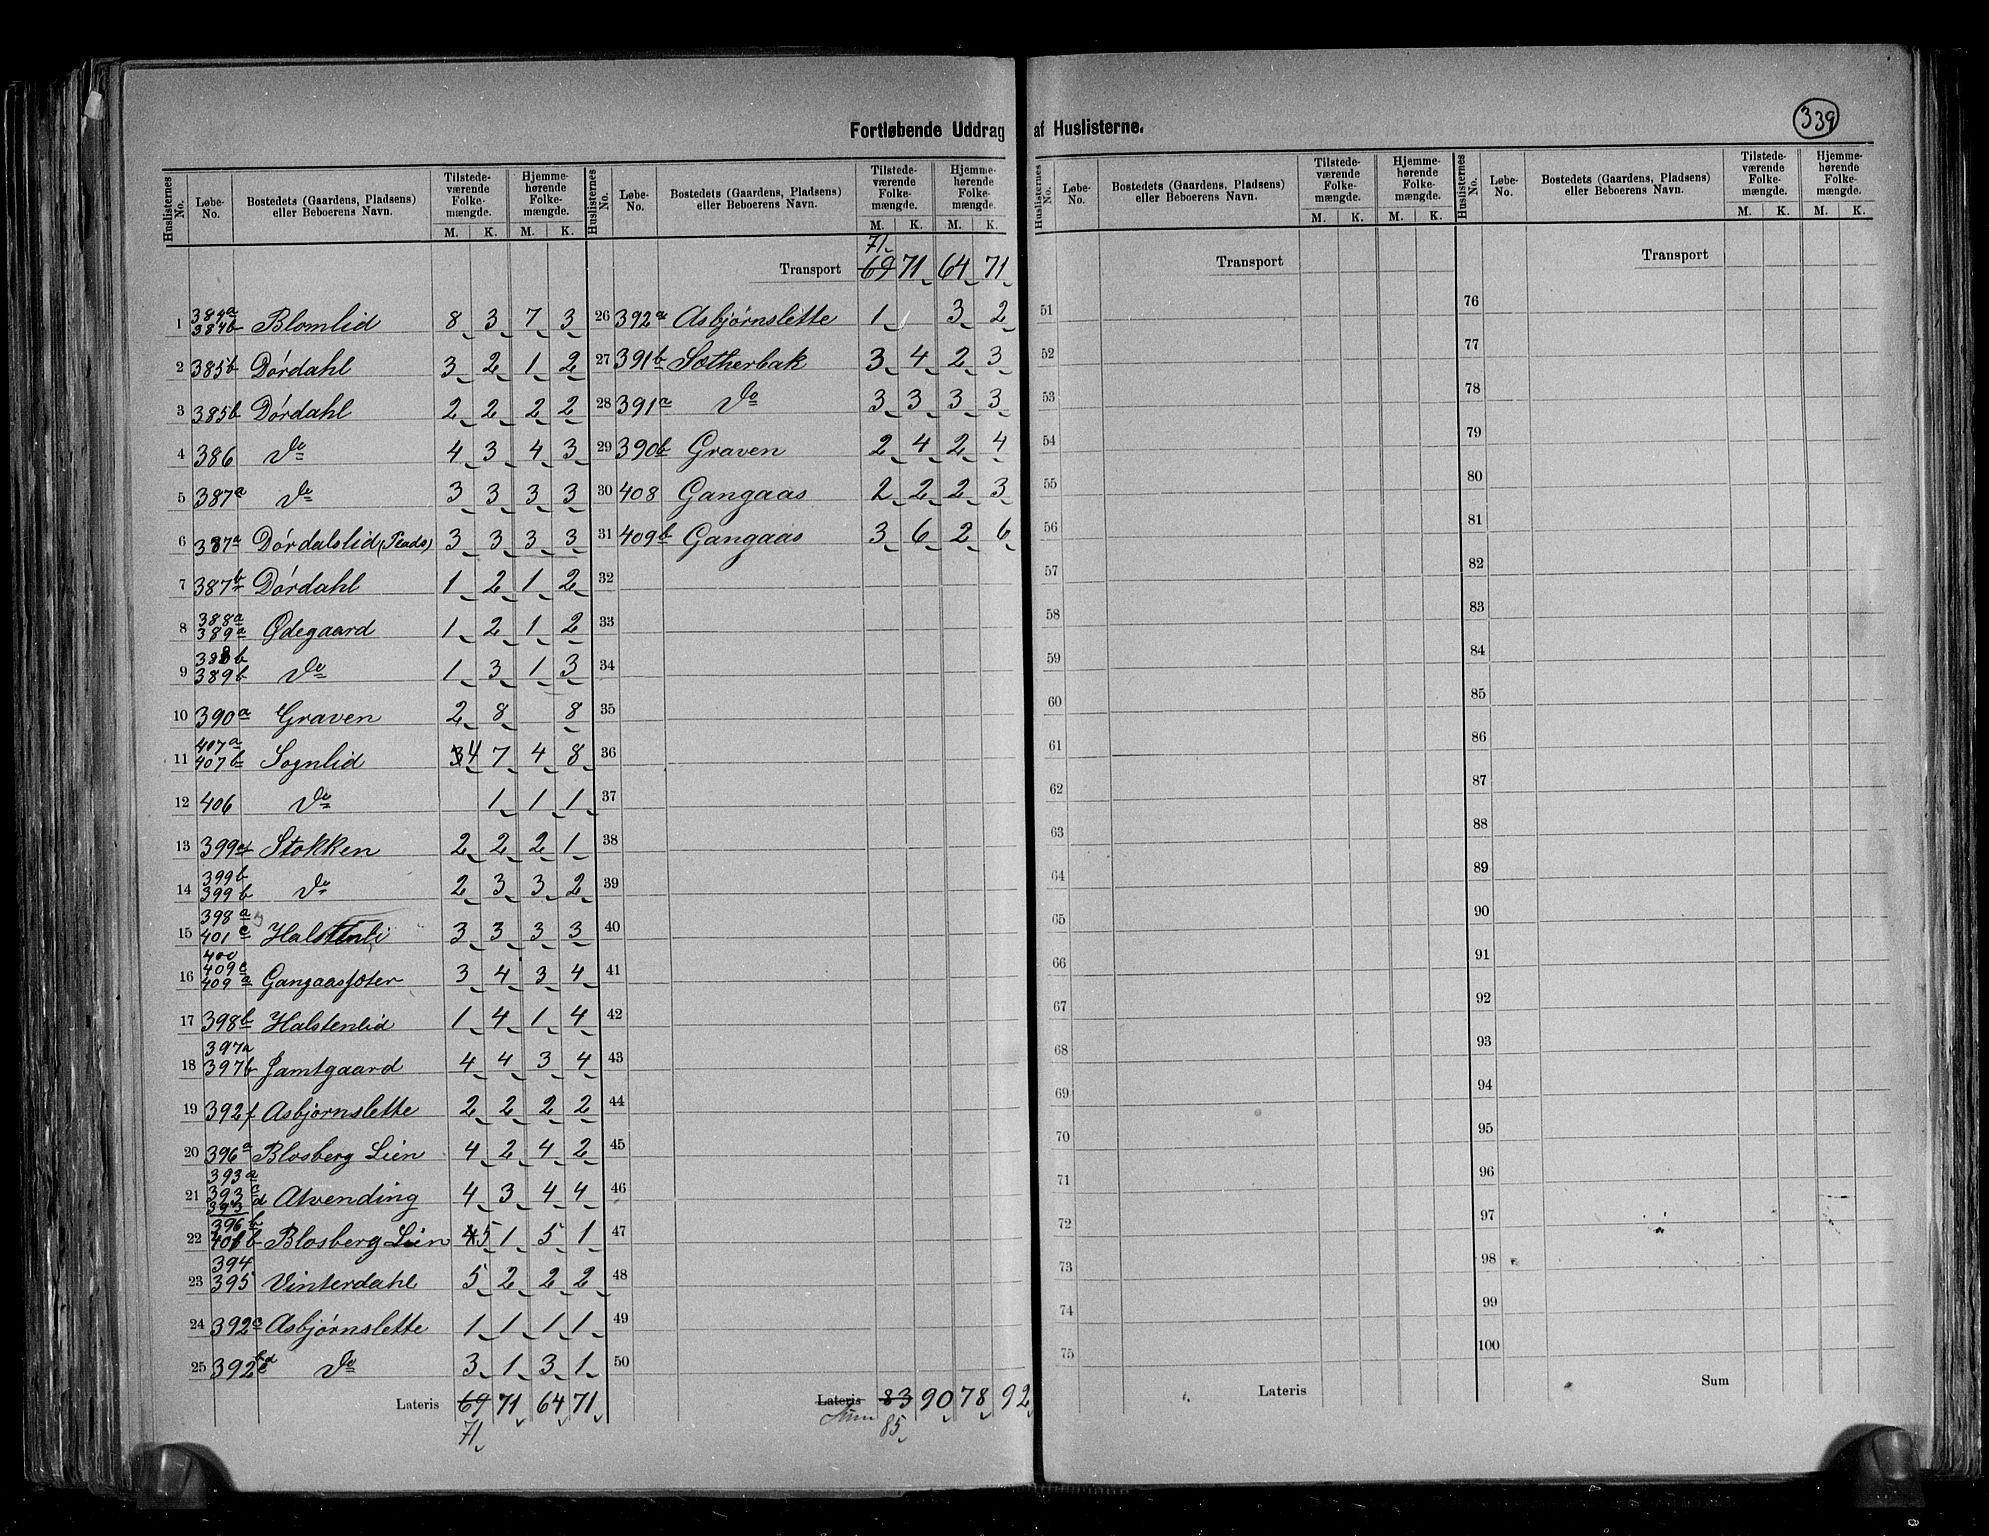 339
Fortløbende Uddrag af Huslisterne.
Huslisternes No. | Løbe-No. | Bostedets (Gaardens, Pladsens) eller Beboerens Navn. | Tilstede-værende Folke-mængde. M. K. | Hjemme-hørende Folke-mængde. M. K.
1 | 384a 384b | Blomlid | 8 | 3 | 7 | 3
2 | 385b | Dørdahl | 3 | 2 | 1 | 2
3 | 385b | Dørdahl | 2 | 2 | 2 | 2
4 | 386 | Do | 4 | 3 | 4 | 3
5 | 387a | Do | 3 | 3 | 3 | 3
6 | 387a | Dørdalslid (Plads) | 3 | 3 | 3 | 3
7 | 387b | Dørdahl | 1 | 2 | 1 | 2
8 | 388a 389a | Ødegaard | 1 | 2 | 1 | 2
9 | 388b 389b | Do | 1 | 3 | 1 | 3
10 | 390a | Graven | 2 | 8 | | 8
11 | 407a 407b | Sognlid | 3 4 | 7 | 4 | 8
12 | 406 | Do | | 1 | 1 | 1
13 | 399a | Stokken | 2 | 2 | 2 | 1
14 | 399b 399b | Do | 2 | 3 | 3 | 2
15 | 398a 401c | Halstenli | 3 | 3 | 3 | 3
16 | 400 409c 409a | Gangaassæter | 3 | 4 | 3 | 4
17 | 398b | Halstenlid | 1 | 4 | 1 | 4
18 | 397a 397b | Jamtgaard | 4 | 4 | 3 | 4
19 | 392f | Asbjørnslette | 2 | 2 | 2 | 2
20 | 396a | Blosberg Lien | 4 | 2 | 4 | 2
21 | 393a 393c 393d | Atvending | 4 | 3 | 4 | 4
22 | 396b 401b | Blosberg Lien | 4 5 | 1 | 5 | 1
23 | 394 395 | Vinterdahl | 5 | 2 | 2 | 2
24 | 392c | Asbjørnslette | 1 | 1 | 1 | 1
25 | 392 | Do | 3 | 1 | 3 | 1
Lateris | 69 | 71 | 64 | 71
71
Huslisternes No. | Løbe-No. | Bostedets (Gaardens, Pladsens) eller Beboerens Navn. | Tilstede-værende Folke-mængde. M. K. | Hjemme-hørende Folke-mængde. M. K.
71
Transport | 69 | 71 | 64 | 71
26 | 392a | Asbjørnslette | 1 | | 3 | 2
27 | 391b | Sætherbak | 3 | 4 | 2 | 3
28 | 391a | Do | 3 | 3 | 3 | 3
29 | 390b | Graven | 2 | 4 | 2 | 4
30 | 408 | Gangaas | 2 | 2 | 2 | 3
31 | 409b | Gangaas | 3 | 6 | 2 | 6
32
33
34
35
36
37
38
39
40
41
42
43
44
45
46
47
48
49
50
Lateris | 83 | 90 | 78 | 92
Sum 85
Huslisternes No. | Løbe-No. | Bostedets (Gaardens, Pladsens) eller Beboerens Navn. | Tilstede-værende Folke-mængde. M. K. | Hjemme-hørende Folke-mængde. M. K.
Transport
51
52
53
54
55
56
57
58
59
60
61
62
63
64
65
66
67
68
69
70
71
72
73
74
75
Lateris
Huslisternes No. | Løbe-No. | Bostedets (Gaardens, Pladsens) eller Beboerens Navn. | Tilstede-værende Folke-mængde. M. K. | Hjemme-hørende Folke-mængde. M. K.
Transport
76
77
78
79
80
81
82
83
84
85
86
87
88
89
90
91
92
93
94
95
96
97
98
99
100
Sum